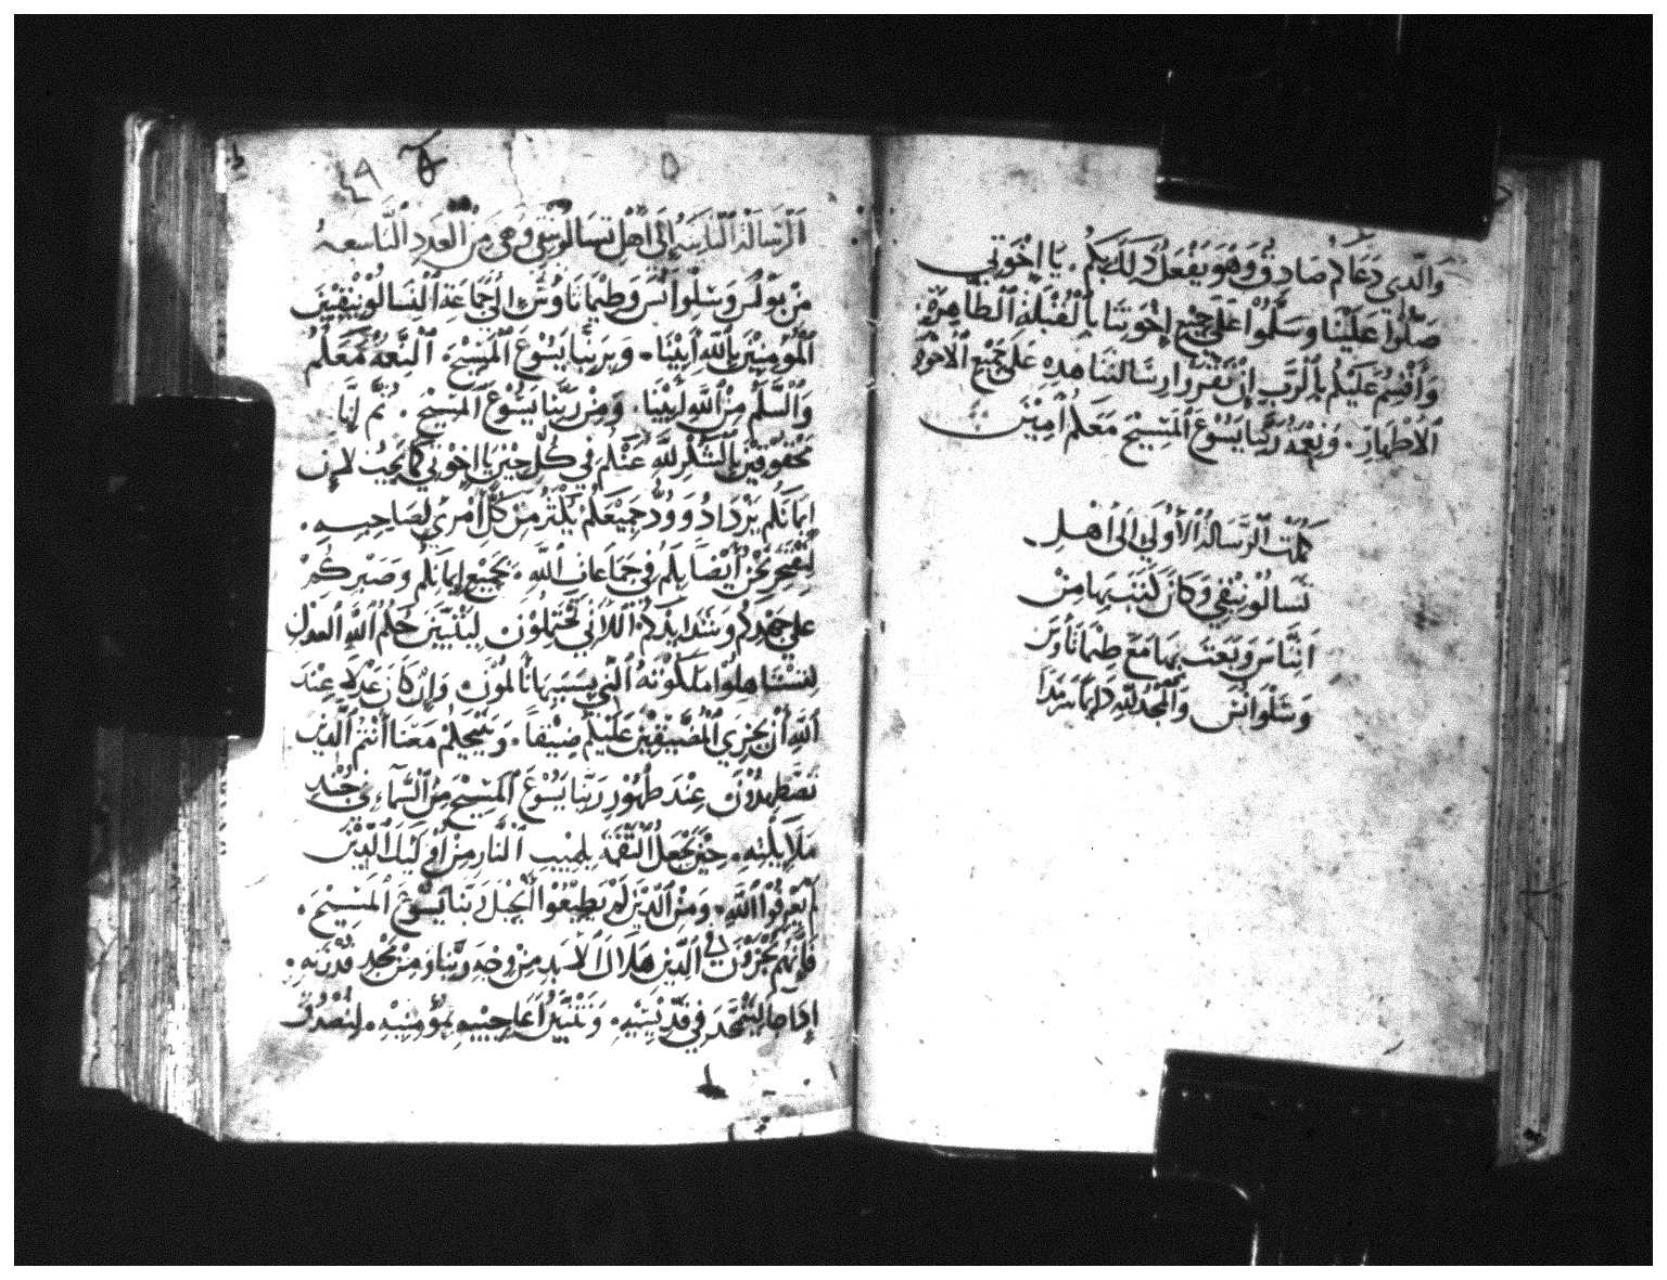 وَالَّذِي دَعَاكُمْ صَادِقٌ وَهُوَ يَفْعَلُ ذَلِكَ بِكُمْ. يَا إِخْوَتِي
صَلُّوا عَلَيْنَا وَسَلِّمُوا عَلَى جَمِيعِ إِخْوَتِنَا بِالْقُبْلَةِ الطَّاهِرَةِ
وَأُقْسِمُ عَلَيْكُمْ بِالرَّبِّ إِنْ تَقْرَوا رِسَالَتَنَا هَذِهِ عَلَى جَمِيعِ الْاخْوَةِ
الْاطْهَارِ. وَنِعْمَةُ رَبِّنَا يَسُوعَ الْمَسِيحِ مَعَكُمْ امِيْنَ
كَمُلَتِ الرِّسَالَةُ الْأُولَى إِلَى أَهْلِ
تَسَالُونِيْقِي وَكَانَ كَتَبَ بِهَا مِنْ
اثِنَّاسَ وَبَعَثَ بِهَا مَعَ طِيمَاثَاوُسَ
وَسَلْوَانُسَ وَالْمَجْدُ لِلَّهِ دَايِمًا سَرْمَدًا
٤٩
الرِّسَالَةُ الثَّانِيَةُ إِلَى أَهْلِ تَسَالُونِيْقِي وَهِيَ مِنَ الْعَدَدِ التَّاسِعَةُ
مِنْ بَوْلُسَ وَسِلْوَانُسَ وَطِيمَاثَاوُسَ إِلَى جَمَاعَةِ التَّسَالُونِيْقِيِّيْنَ
الْمُؤْمِنِيْنَ بِاللَّهِ أَبِيْنَا. وَبِرَبِّنَا يَسُوْعَ الْمَسِيْحِ. النِّعْمَةُ مَعَكُمْ
وَالسَّلَمُ مِنَ اللَّهِ أَبِيْنَا. وَمِنْ رَبِّنَا يَسُوْعَ الْمَسِيْحِ. ثُمَّ إِنَّا
مَحْقُوقِيْنَ بِالشُّكْرِ لِلَّهِ عَنْكُمْ فِي كُلِّ حِيْنٍ يَا إِخْوَتِي كَمَا يَجِبُ لِأَنَّ
إِيمَانَكُمْ يَزْدَادُ وَوُدُّ جَمِيْعِكُمْ يَكْثُرُ مِنْ كُلِّ امْرِئٍ لِصَاحِبِهِ.
لِنَفْتَخِرَ نَحْنُ أَيْضًا بِكُمْ فِي جَمَاعَاتِ اللَّهِ. بِجَمِيْعِ إِيمَانِكُمْ وَصَبْرِكُمْ
عَلَى جَهْدِكُمْ وَشَدَايِدِكُمُ اللَّاتِي تَحْتَمِلُوْنَ لِيَتَبَيَّنَ حُكْمُ اللَّهِ الْعَدْلِ
لِتَسْتَاهِلُوا مَلَكُوْتَهُ الَّتِي بِسَبَبِهَا تَالَمُوْنَ وَإِنْ كَانَ عَدْلًا عِنْدَ
اللَّهِ أَنْ يَجْزِيَ الْمُضَيِّقِيْنَ عَلَيْكُمْ ضِيْقًا. وَيُنَجِّيكُمْ مَعَنَا أَنْتُمُ الَّذِيْنَ
تُضْطَهَدُوْنَ عِنْدَ ظُهُوْرِ رَبِّنَا يَسُوْعَ الْمَسِيْحِ مِنَ السَّمَاءِ فِي جُنْدِ
مَلَايِكَتِهِ. حِيْنَ يَجْعَلُ النِّقْمَةَ بِلَهِيْبِ النَّارِ مِنْ أُولَيِكَ الَّذِيْنَ
لَمْ يَعْرِفُوْا اللَّهَ. وَمِنَ الَّذِيْنَ لَمْ يُطِيْعُوْا إِنْجِيْلَ رَبِّنَا يَسُوْعَ الْمَسِيْحِ.
فَإِنَّهُمْ يُجْزَوْنَ فِي الدِّيْنِ هَلَاكَ الْأَبَدِ مِنْ وَجْهِ رَبِّنَا وَمِنْ مَجْدِ قُدْرَتِهِ.
إِذَا جَا لِيَتَمَجَّدَ فِي قِدِّيْسِيْهِ. وَتَتَبَيَّنُ أَعَاجِيْبُهِ بِمُؤْمِنِيْهِ. لِتُصَدَّقَ